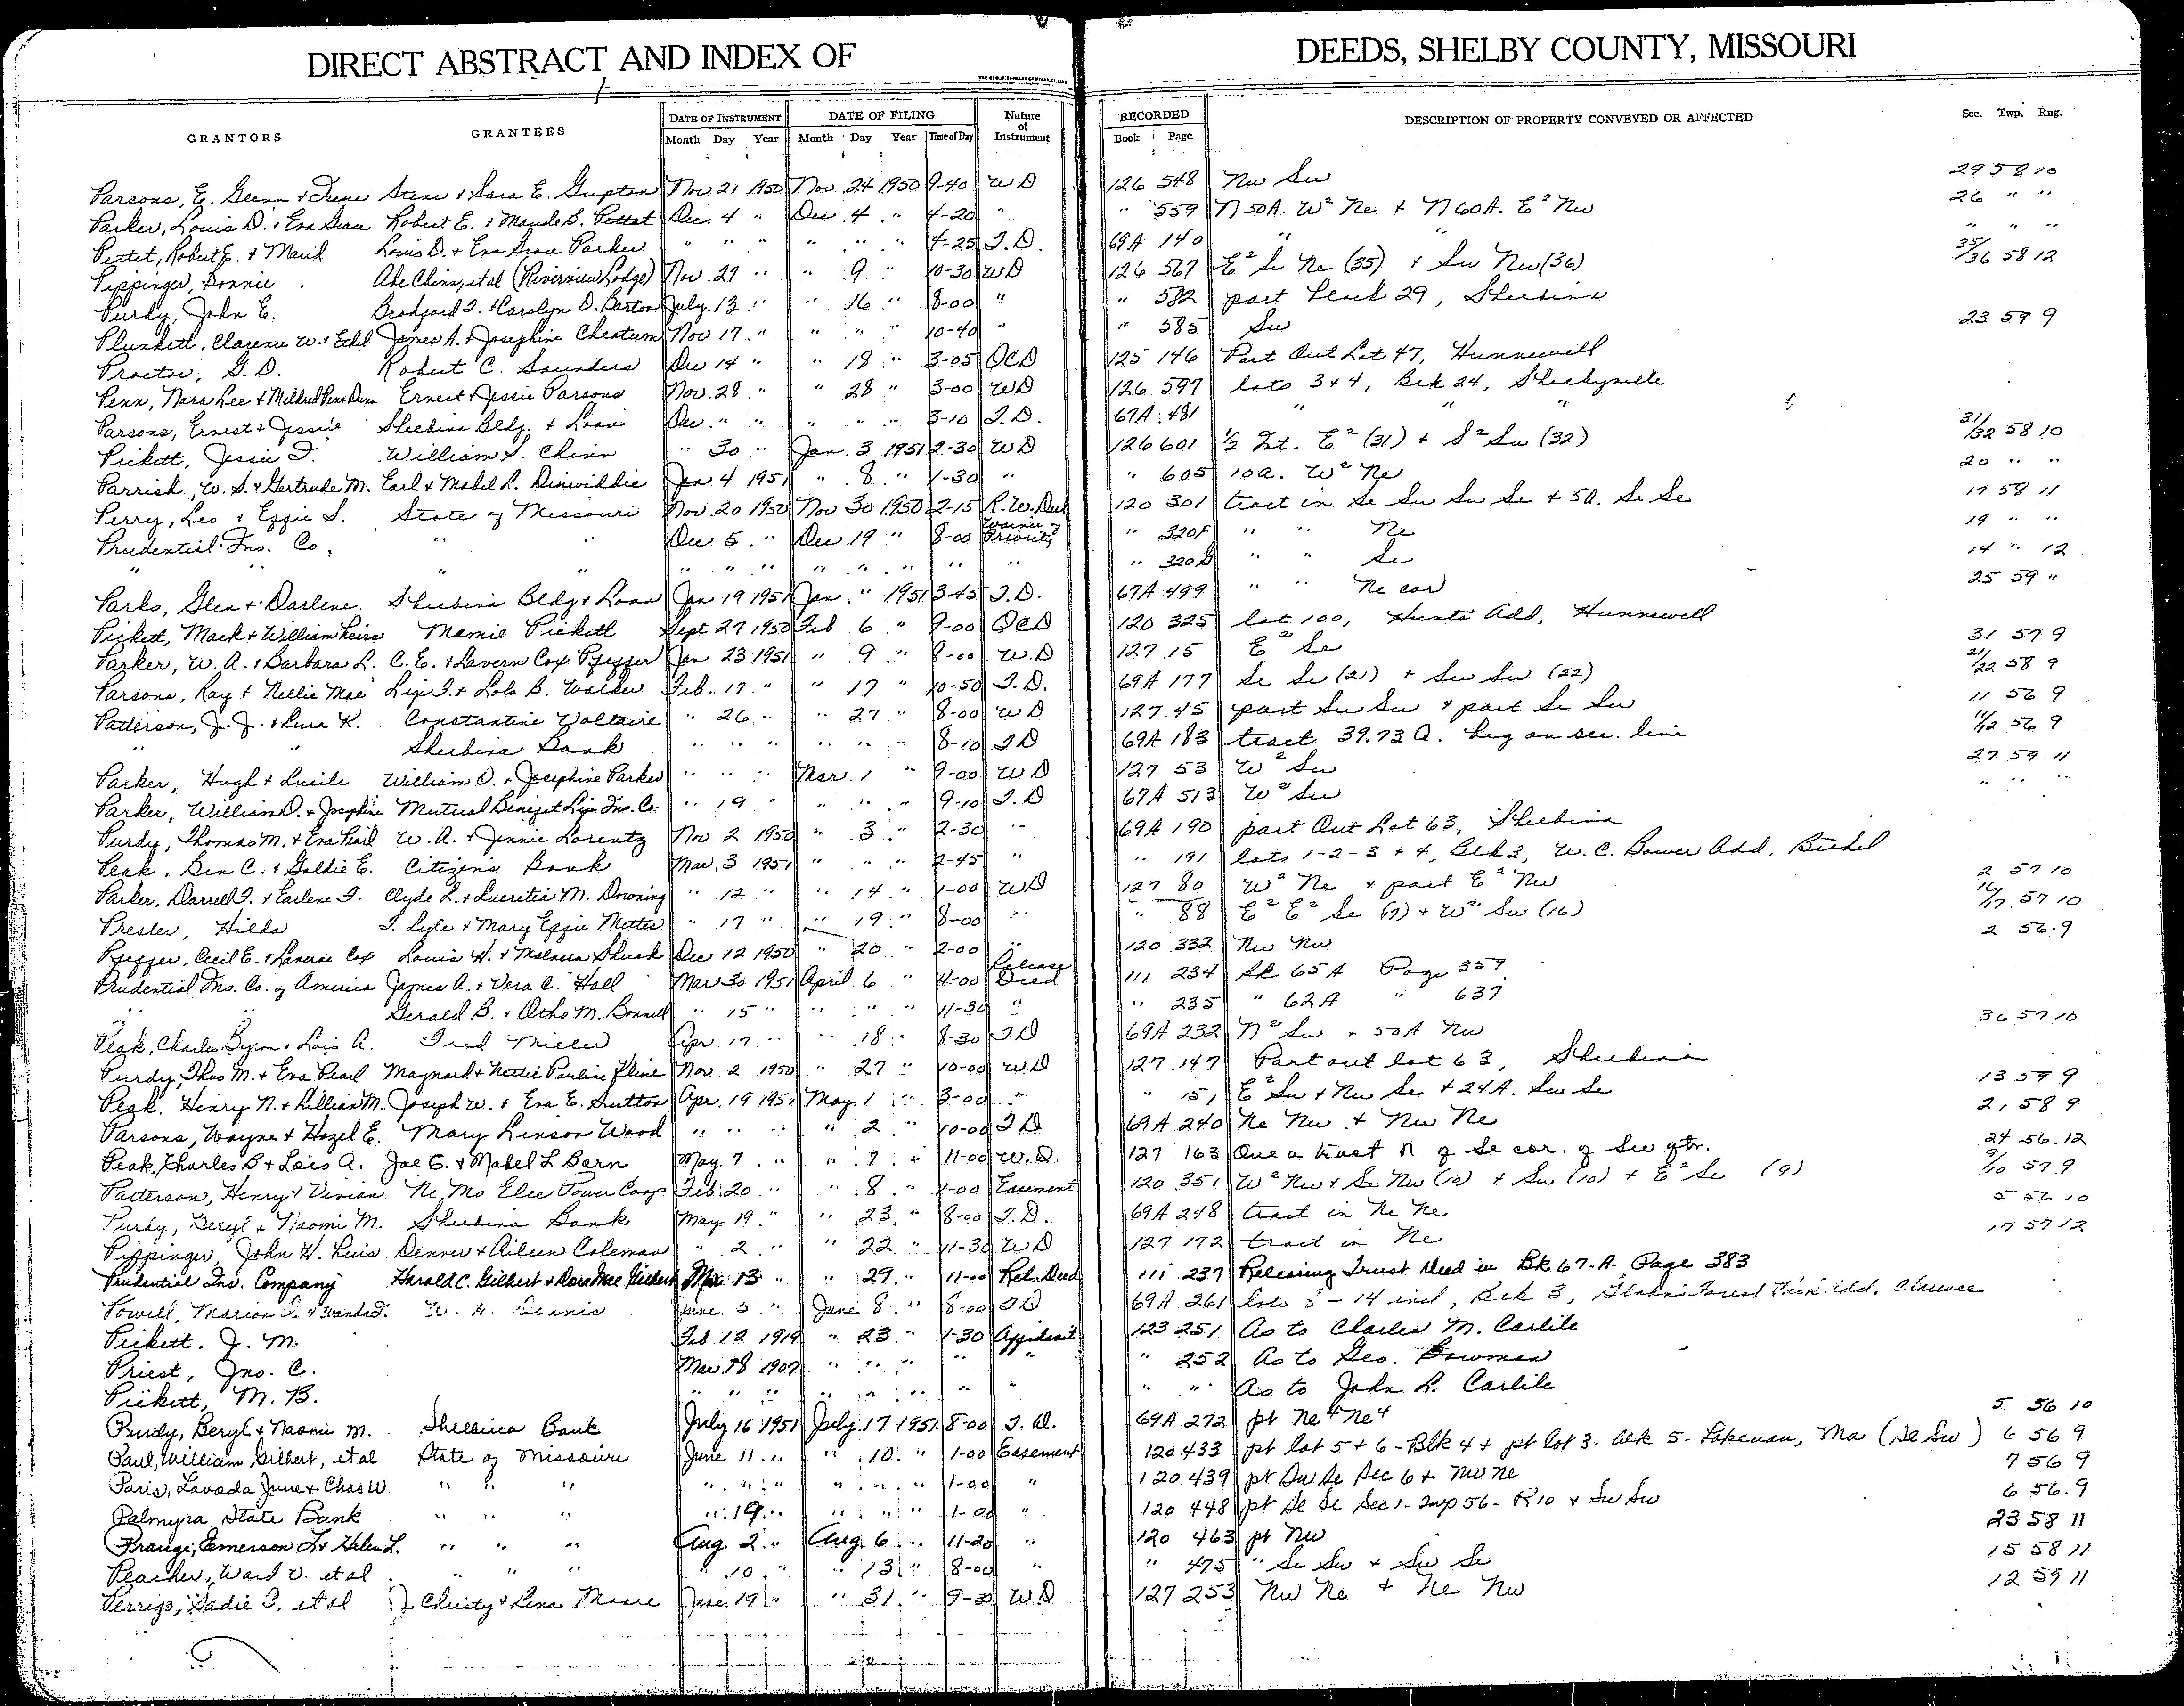 DIRECT ABSTRACT AND INDEX OF DEEDS, SHELBY COUNTY, MISSOURI
GRANTORS GRANTEES DATE OF INSTRUMENT DATE OF FILING Nature of Instrument RECORDED DESCRIPTION OF PROPERTY CONVEYED OR AFFECTED Sec. Twp. Rng.
Month Day Year Month Day Year Time of Day Book Page
Parsons, E. Glenn & Irene Steve & Sara E. Gupton Nov 21 1950 Nov. 24 1950 9-40 WD 126 548 Nw Sw 29 58 10
Parker, Louis D. & Eva Grace Robert E. & Maude B. Pettet Dec. 4 " Dec. 4 " 4-20 " " 559 N 50A. W² Ne & N 60A. E² Nw 26 " "
Pettet, Robert E. & Maud Louis D. & Eva Grace Parker " " " " " " 4-25 T.D. 69A 140 " " " " "
Pippinger, Donnie Abe Chinn, et al (Riverview Lodge) Nov. 27 " " 9 " 10-30 WD 126 567 E² Se Ne (35) & Sw Nw (36) 35/36 58 12
Purdy, John E. Bradford I. & Carolyn D. Barton July 13 " " 16 " 8-00 " " 582 part Block 29, Shelbina
Plunkett, Clarence W. & Ethel James A. & Josephine Cheatum Nov 17 " " " " 10-40 " " 585 Sw 23 59 9
Proctor, G. D. Robert C. Saunders Dec 14 " " 18 " 3-05 QCD 125 146 Part Out Lot 47, Hunnewell
Penn, Nora Lee & Mildred Penn Dunn Ernest & Jessie Parsons Nov. 28 " " 28 " 3-00 WD 126 597 lots 3 & 4, Blk 24, Shelbyville
Parsons, Ernest & Jessie Shelbina Bldg. & Loan Dec. " " " " " 3-10 T.D. 67A 481 " " "
Pickett, Jessie T. William S. Chinn " 30 " Jan. 3 1951 2-30 WD 126 601 ½ Int. E² (31) & S² Sw (32) 31/32 58 10
Parrish, W. S. & Gertrude M. Earl & Mabel L. Dinwiddie Jan 4 1951 " 8 " 1-30 " " 605 10a. W² Ne 20 " "
Perry, Leo & Effie S. State of Missouri Nov. 20 1950 Nov 30 1950 2-15 R.W. Deed 120 301 tract in Se Sw Sw Se & 5A. Se Se 17 58 11
Prudential Ins. Co. " " Dec 5 " Dec 19 " 8-00 Waiver of Priority " 320F " " Ne 19 " "
" " " " " " " " " " " " " " 320G " " Se 14 " 12
Parks, Glen & Darlene Shelbina Bldg & Loan Jan 19 1951 Jan. " 1951 3-45 T.D. 67A 499 " " Ne cor 25 59 "
Pickett, Mack & William heirs Mamie Pickett Sept 27 1950 Feb 6 " 9-00 QCD 120 325 lot 100, Hunts Add, Hunnewell
Parker, W. A. & Barbara L. C. E. & Lavern Cox Pfeffer Jan 23 1951 " 9 " 8-00 W.D 127 15 E² Se 31 57 9
Parsons, Ray & Nellie Mae Ligi T. & Lola B. Walker Feb. 17 " " 17 " 10-50 T.D. 69A 177 Se Se (21) & Sw Sw (22) 21/22 58 9
Patterson, J. J. & Lura K. Constantine Voltaire " 26 " " 27 " 8-00 WD 127 45 part Sw Sw & part Se Sw 11 56 9
" " Shelbina Bank " " " " " " 8-10 TD 69A 183 tract 39.73 A. beg on sec. line 11/12 56 9
Parker, Hugh & Lucile William O. & Josephine Parker " " " Mar. 1 " 9-00 WD 127 53 W² Sw 27 59 11
Parker, William O. & Josephine Mutual Benefit Life Ins. Co. " 19 " " " " 9-10 T.D 67A 513 W² Sw " " "
Purdy, Thomas M. & Eva Pearl W. A. & Jennie Lorentz Nov 2 1950 " 3 " 2-30 " 69A 190 part Out Lot 63, Shelbina
Peak, Ben C. & Goldie E. Citizens Bank Mar 3 1951 " " " 2-45 " " 191 lots 1-2-3 & 4, Blk 2, W. C. Bower Add, Bethel
Parker, Darrell T. & Earlene F. Clyde L. & Lucretia M. Downing " 12 " " 14 " 1-00 WD 127 80 W² Ne & part E² Nw 2 57 10
Presler, Hilda T. Lyle & Mary Effie Mettes " 17 " " 19 " 8-00 " " 88 E² E² Se (17) & W² Sw (16) 16/17 57 10
Pfeffer, Cecil E. & Laverne Cox Louis H. & Malvera Shuck Dec 12 1950 " 20 " 2-00 " 120 332 Nw Nw 2 56 9
Prudential Ins. Co. of America James A. & Vera C. Hall Mar 30 1951 April 6 " 4-00 Release Deed 111 234 Bk 65A Page 359
" " Gerald B. & Otho M. Bonnell " 15 " " " " 11-30 " " 235 " 62A " 637
Peak, Charles Byron & Lois A. Fred Miller Apr. 17 " " 18 " 8-30 TD 69A 232 N² Sw & 50A Nw 36 57 10
Purdy, Thos M. & Eva Pearl Maynard & Nettie Pauline Kline Nov 2 1950 " 27 " 10-00 WD 127 147 Part out lot 63, Shelbina
Peak, Henry N. & Lillian M. Joseph W. & Eva E. Sutton Apr. 19 1951 May 1 " 3-00 " " 151 E² Sw & Nw Se & 24A. Sw Se 13 59 9
Parsons, Wayne & Hazel E. Mary Linson Wood " " " " 2 " 10-00 TD 69A 240 Ne Nw & Nw Ne 21 58 9
Peak, Charles B & Lois A. Joe E. & Mabel L Born May 7 " " 7 " 11-00 W.D. 127 163 One a tract N of Se cor. of Sw qtr. 24 56 12
Patterson, Henry & Vivian Ne Mo Elec Power Coop Feb. 20 " " 8 " 1-00 Easement 120 351 W² Nw & Se Nw (10) & Sw (10) & E² Se (9) 9/10 57 9
Purdy, Beryl & Naomi M. Shelbina Bank May 19 " " 23 " 8-00 T.D. 69A 248 tract in Ne Ne 5 56 10
Pippinger, John H. Luis Denver & Aileen Coleman " 2 " " 22 " 11-30 WD 127 172 tract in Ne 17 57 12
Prudential Ins. Company Harold C. Gilbert & Dora Mae Gilbert Mar 13 " " 29 " 11-00 Rel. Deed 111 237 Releasing Trust Deed in Bk 67-A- Page 383
Powell, Marion O. & Wanda F. W. H. Dennis June 5 " June 8 " 8-00 TD 69A 261 lots 5-14 incl, Blk 3, Forest Park Add. Clarence
Pickett, J. M. Feb 12 1919 " 23 " 1-30 Affidavit 123 251 As to Charles M. Carlile
Priest, Jno. C. Mar 18 1907 " " " " " " 252 As to Geo. Bowman
Pickett, M. B. " " " " " " " " " " As to John L. Carlile
Purdy, Beryl & Naomi M. Shelbina Bank July 16 1951 July 17 1951 8-00 T.D. 69A 272 pt Ne⁴ Ne⁴ 5 56 10
Paul, William Gilbert, et al State of Missouri June 11 " " 10 " 1-00 Easement 120 433 pt lot 5 & 6 - Blk 4 & pt lot 3. blk 5 - Lakenan, Mo (Se Sw) 6 56 9
Paris, Lavada June & Chas W. " " " " " " " " " 1-00 " 120 439 pt Sw Se Sec 6 & Nw Ne 7 56 9
Palmyra State Bank " " " " 19 " " " " 1-00 " 120 448 pt Se Se Sec 1 - Twp 56 - R 10 & Sw Sw 6 56 9
Prange, Emerson L & Helen L. " " " Aug. 2 " Aug. 6 " 11-20 " 120 463 pt Nw 23 58 11
Peacher, Ward V. et al " " " " 10 " " 13 " 8-00 " " 475 " Se Sw & Sw Se 15 58 11
Perrigo, Sadie C. et al Christy & Lena Moore June 19 " " 31 " 9-30 WD 127 253 Nw Ne & Ne Nw 12 59 11